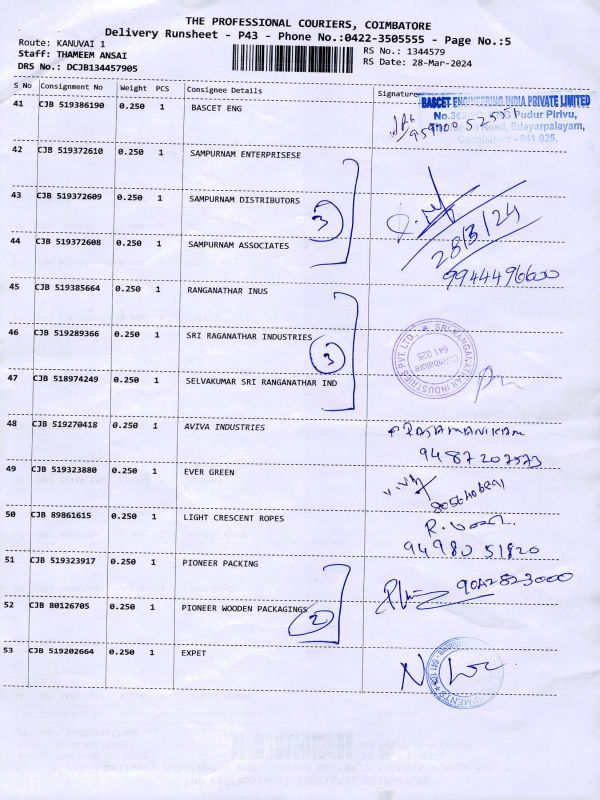 THE PROFESSIONAL COURIERS, COIMBATORE
Delivery Runsheet - P43 - Phone No.:0422-3505555 - Page No.:5
Route: KANUVAI 1
Staff: THAMEEM ANSAI
DRS No.: DCJB134457905
RS No.: 1344579
RS Date: 28-Mar-2024
S No Consignment No Weight PCS Consignee Details Signature
41 CJB 519386190 0.250 1 BASCET ENG
BASCET ENGINEERING INDIA PRIVATE LIMITED
Pudur Pirivu,
Road, Edayarpalayam,
Coimbatore - 641 025.
42 CJB 519372610 0.250 1 SAMPURNAM ENTERPRISESE
43 CJB 519372609 0.250 1 SAMPURNAM DISTRIBUTORS
3
28/3/24
44 CJB 519372608 0.250 1 SAMPURNAM ASSOCIATES
9944496600
45 CJB 519385664 0.250 1 RANGANATHAR INUS
46 CJB 519289366 0.250 1 SRI RAGANATHAR INDUSTRIES
3
SRI RANGANATHAR INDUSTRIES PVT. LTD.
Coimbatore
641 025
47 CJB 518974249 0.250 1 SELVAKUMAR SRI RANGANATHAR IND
48 CJB 519270418 0.250 1 AVIVA INDUSTRIES
9487207573
49 CJB 519323880 0.250 1 EVER GREEN
50 CJB 89861615 0.250 1 LIGHT CRESCENT ROPES
94980 51820
51 CJB 519323917 0.250 1 PIONEER PACKING
9042823000
52 CJB 80126705 0.250 1 PIONEER WOODEN PACKAGINGS
2
53 CJB 519202664 0.250 1 EXPET